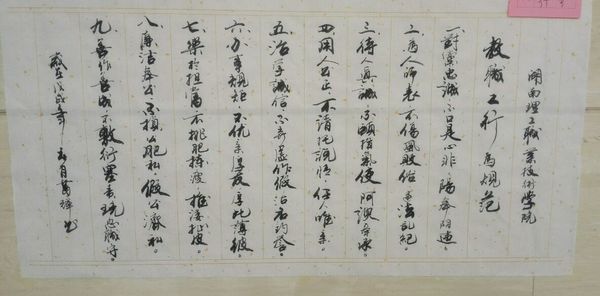 闽南理工职业技术学院
教职工行为规范
一对党忠诚，不口是心非，阳奉阴违。
二、为人师表，不伤风败俗，违法乱纪。
三、待人真诚，不颐指气使，阿谀奉承。
四、用人公正，不请托说情，任唯亲。
五、治学诚信，不弄虚作假，沽名钓誉。
六、办事规矩，不优亲厚友，厚此薄彼。
七、乐于担当，不挑肥拣瘦，推诿扯皮。
八、廉洁奉公，不损公肥私，假公济私。
九、善作善成，不敷衍塞责，玩忽职守。
岁在戊戌年